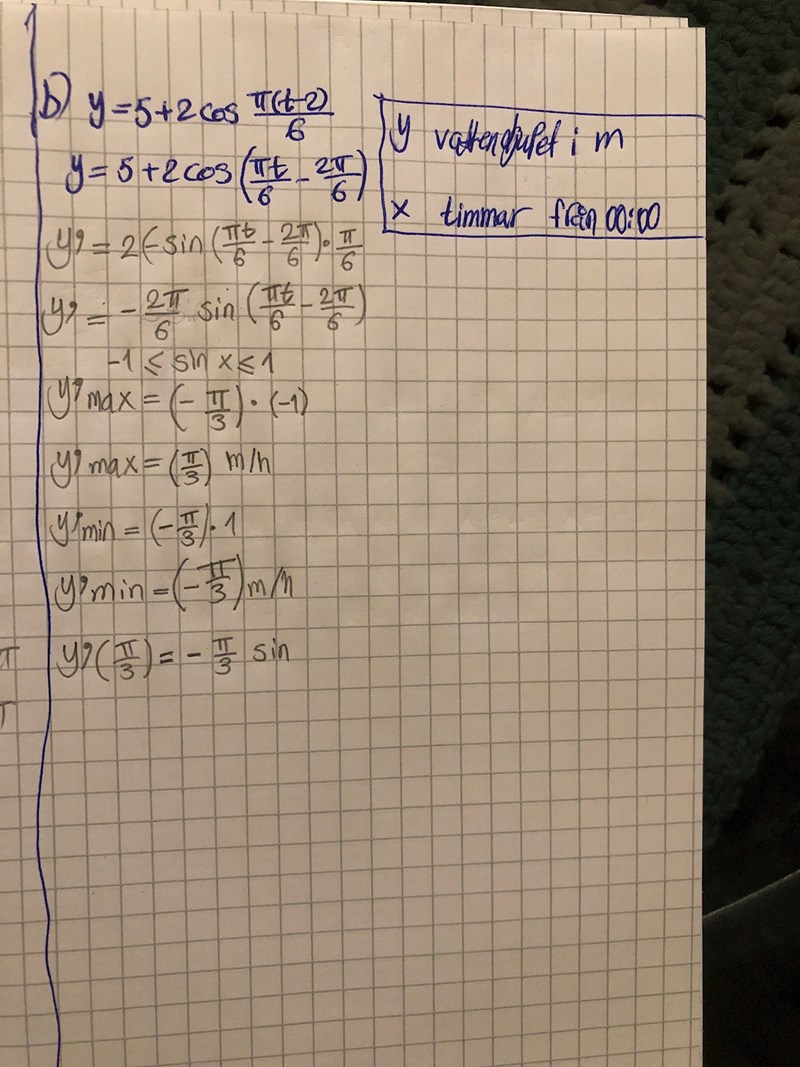 b) y = 5 + 2 cos π(t-2)/6
y = 5 + 2 cos (πt/6 - 2π/6)
y vattendjupet i m
x timmar från 00:00
y' = 2(-sin (πt/6 - 2π/6) · π/6
y' = - 2π/6 sin (πt/6 - 2π/6)
-1 ≤ sin x ≤ 1
y' max = (- π/3) · (-1)
y' max = (π/3) m/h
y' min = (- π/3) · 1
y' min = (- π/3) m/h
y' (π/3) = - π/3 sin
π
π